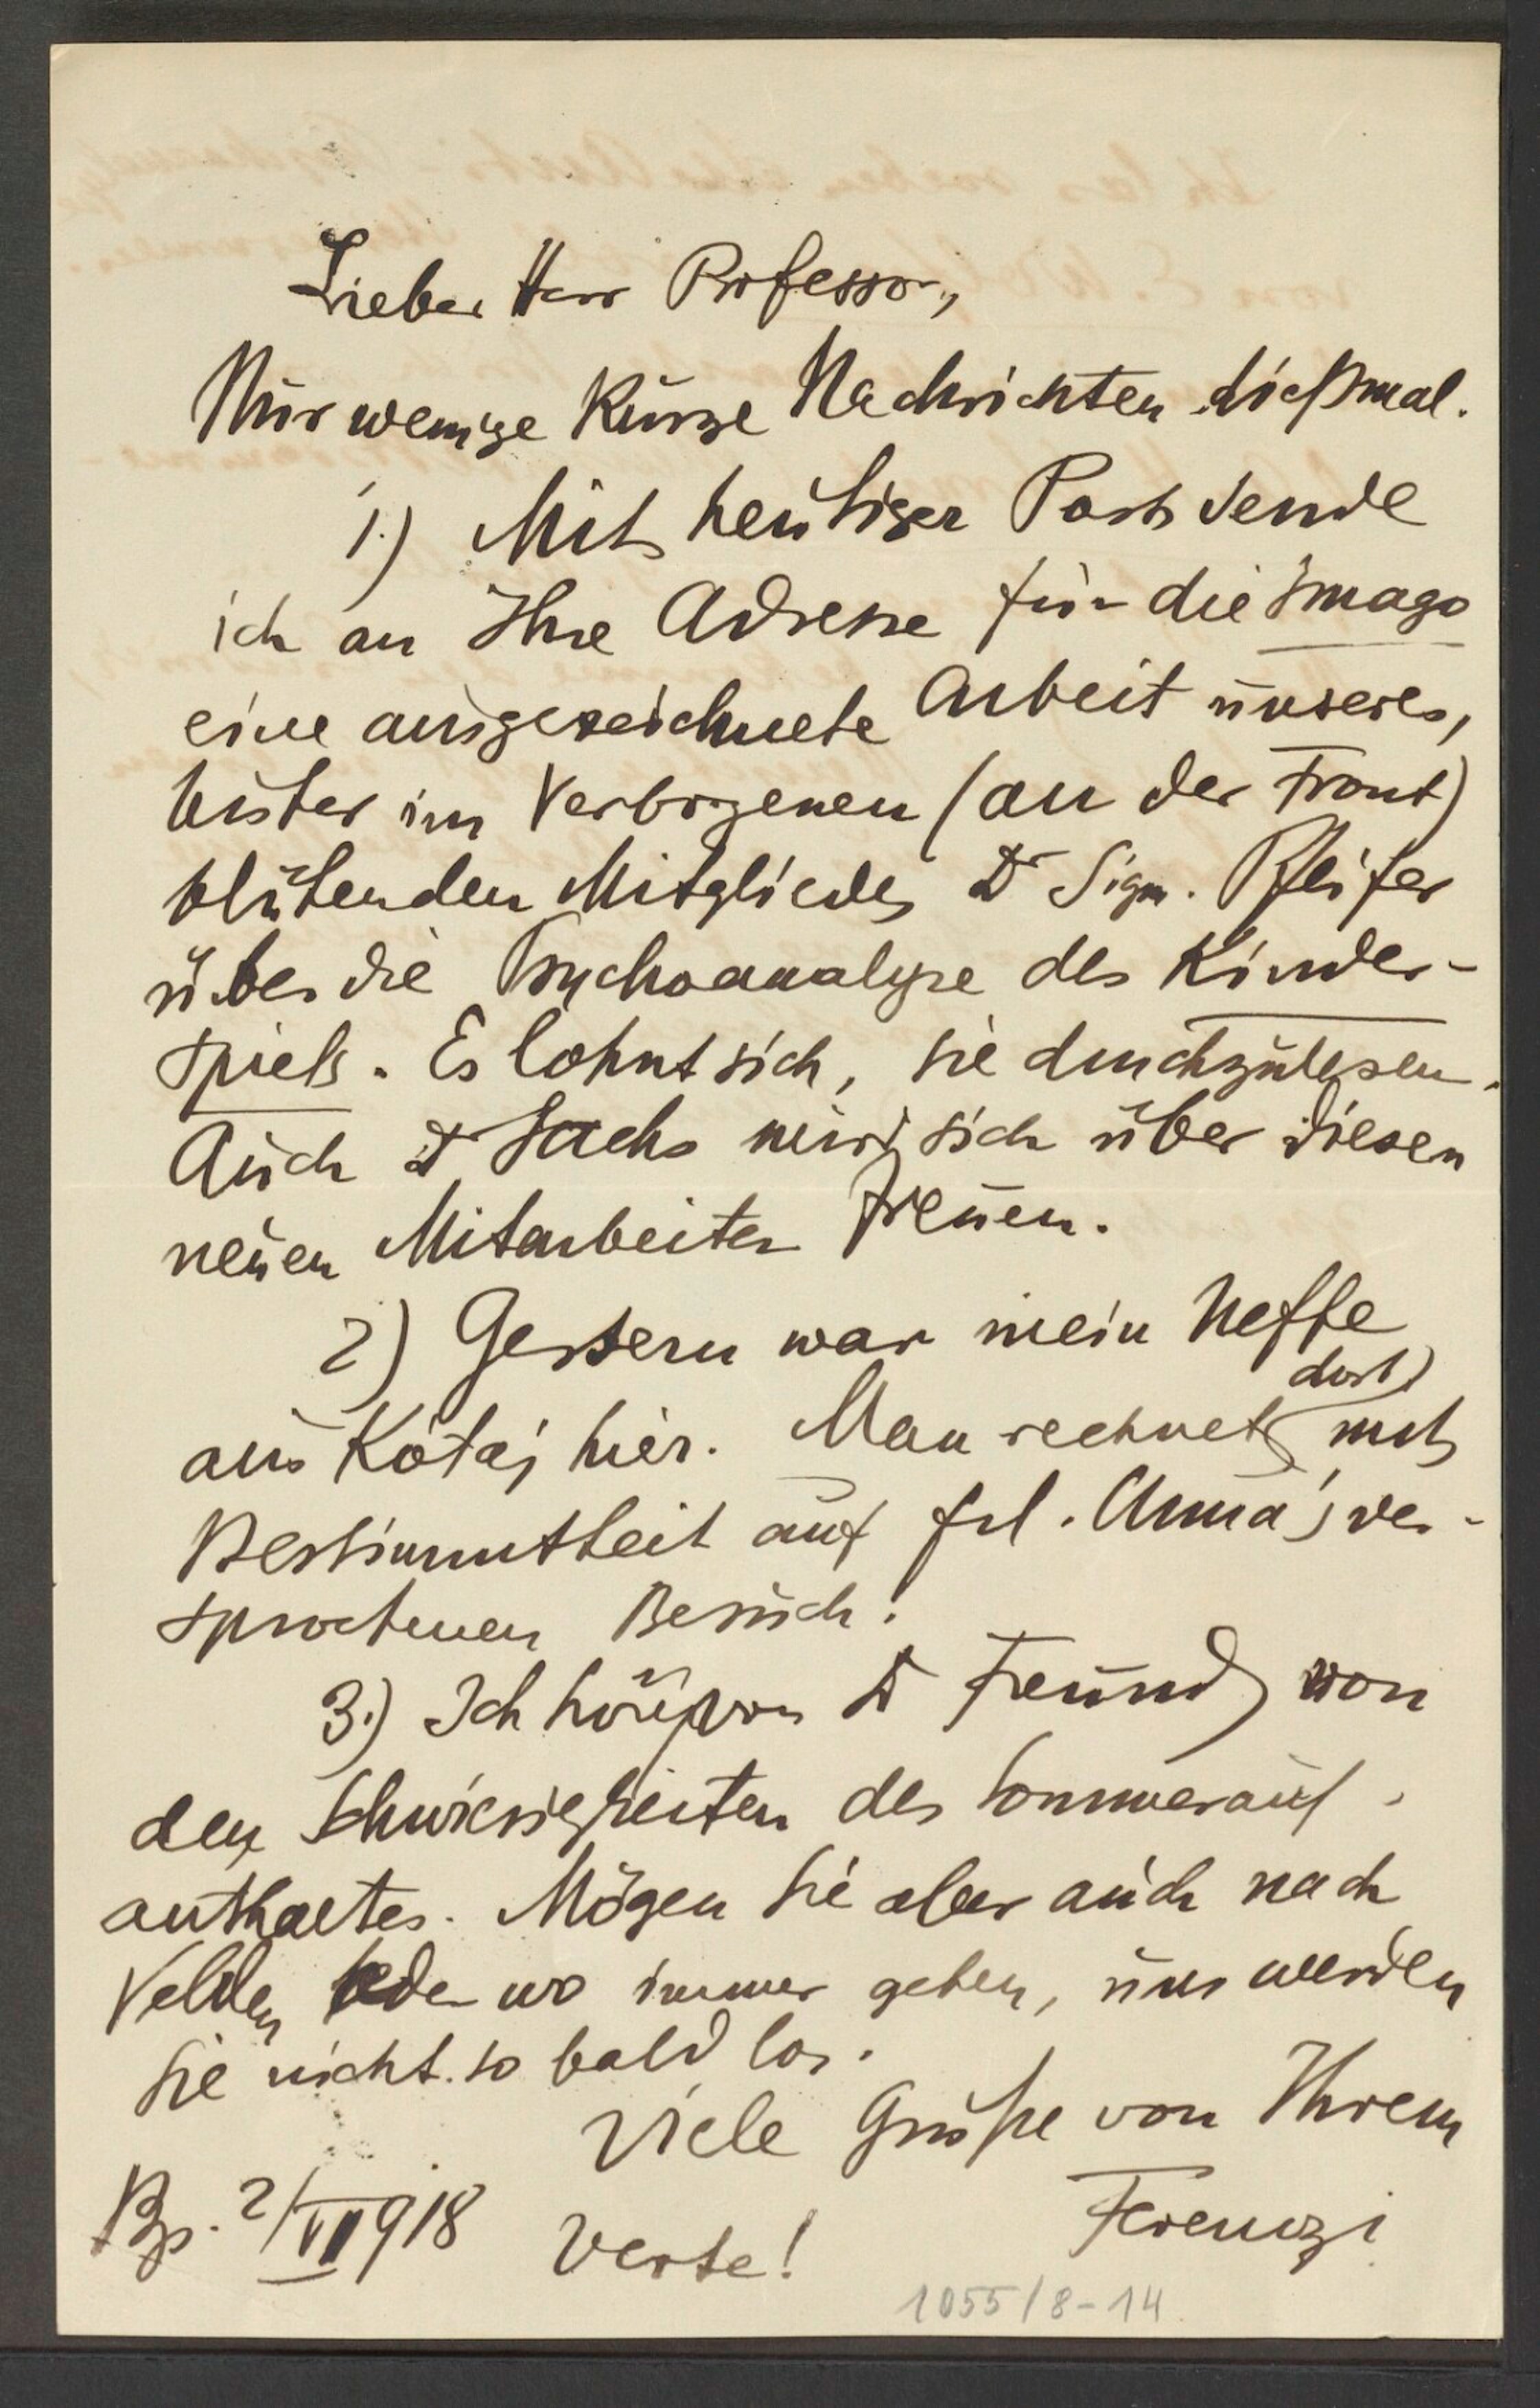 Lieber Herr Professor,
Nur wenige kurze Nachrichten dießmal.
1.) Mit heutiger Post sende
ich an Ihre Adresse für die Imago
eine ausgezeichnete Arbeit unseres,
bisher im Verborgenen (an der Front)
blühenden Mitgliedes Dr Sigm. Pfeifer
über die Psychoanalyse des Kinder-
spiels. Es lohnt sich, sie durchzulesen.
Auch Dr Sachs wird sich über diesen
neuen Mitarbeiter freuen.
2) Gestern war mein Neffe
dort
aus Kótaj hier. Man rechnet mit
Bestimmtheit auf Frl. Anna's ver-
sprochenen Besuch!
3.) Ich höre von Dr Freund von
den Schwierigkeiten des Sommerauf-
enthaltes. Mögen Sie aber auch nach
Velden oder wo immer gehen, uns werden
Sie nicht so bald los.
Viele Grüße von Ihrem
Ferenczi
Bp. 2/VI 918
Verte!
1055/8-14